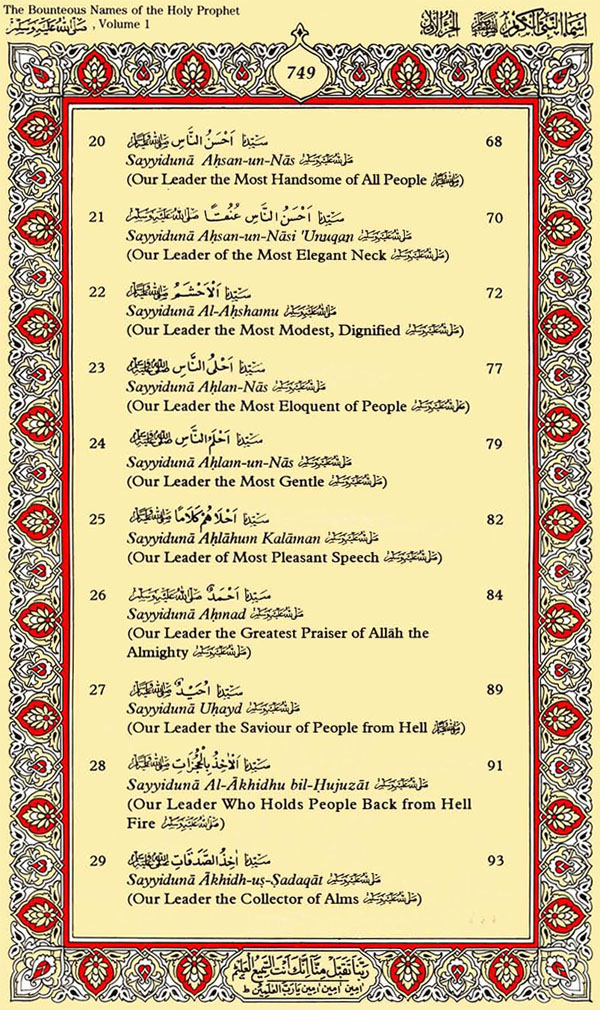 The Bounteous Names of the Holy Prophet
صلى الله عليه وسلم , Volume 1
اسماء النبي الكريم صلى الله عليه وسلم الجزء الاول
749
20 سَيِّدُنَا اَحْسَنُ النَّاسِ صلى الله عليه وسلم 68
Sayyidunā Aḥsan-un-Nās صلى الله عليه وسلم
(Our Leader the Most Handsome of All People صلى الله عليه وسلم)
21 سَيِّدُنَا اَحْسَنُ النَّاسِ عُنُقًا صلى الله عليه وسلم 70
Sayyidunā Aḥsan-un-Nāsi 'Unuqan صلى الله عليه وسلم
(Our Leader of the Most Elegant Neck صلى الله عليه وسلم)
22 سَيِّدُنَا اَلْاَحْشَمُ صلى الله عليه وسلم 72
Sayyidunā Al-Aḥshamu صلى الله عليه وسلم
(Our Leader the Most Modest, Dignified صلى الله عليه وسلم)
23 سَيِّدُنَا اَحْلَى النَّاسِ صلى الله عليه وسلم 77
Sayyidunā Aḥlan-Nās صلى الله عليه وسلم
(Our Leader the Most Eloquent of People صلى الله عليه وسلم)
24 سَيِّدُنَا اَحْلَمُ النَّاسِ صلى الله عليه وسلم 79
Sayyidunā Aḥlam-un-Nās صلى الله عليه وسلم
(Our Leader the Most Gentle صلى الله عليه وسلم)
25 سَيِّدُنَا اَحْلَاهُمْ كَلَامًا صلى الله عليه وسلم 82
Sayyidunā Aḥlāhum Kalāman صلى الله عليه وسلم
(Our Leader of Most Pleasant Speech صلى الله عليه وسلم)
26 سَيِّدُنَا اَحْمَدُ صلى الله عليه وسلم 84
Sayyidunā Aḥmad صلى الله عليه وسلم
(Our Leader the Greatest Praiser of Allāh the
Almighty صلى الله عليه وسلم)
27 سَيِّدُنَا اُحَيْدٌ صلى الله عليه وسلم 89
Sayyidunā Uḥayd صلى الله عليه وسلم
(Our Leader the Saviour of People from Hell صلى الله عليه وسلم)
28 سَيِّدُنَا اَلْاٰخِذُ بِالْحُجُزَاتِ صلى الله عليه وسلم 91
Sayyidunā Al-Ākhidhu bil-Ḥujuzāt صلى الله عليه وسلم
(Our Leader Who Holds People Back from Hell
Fire صلى الله عليه وسلم)
29 سَيِّدُنَا اٰخِذُ الصَّدَقَاتِ صلى الله عليه وسلم 93
Sayyidunā Ākhidh-uṣ-Ṣadaqāt صلى الله عليه وسلم
(Our Leader the Collector of Alms صلى الله عليه وسلم)
رَبَّنَا تَقَبَّلْ مِنَّا اِنَّكَ اَنْتَ السَّمِيْعُ الْعَلِيْمُ
اٰمِيْن اٰمِيْن اٰمِيْن يَا رَبَّ الْعٰلَمِيْنَ ط